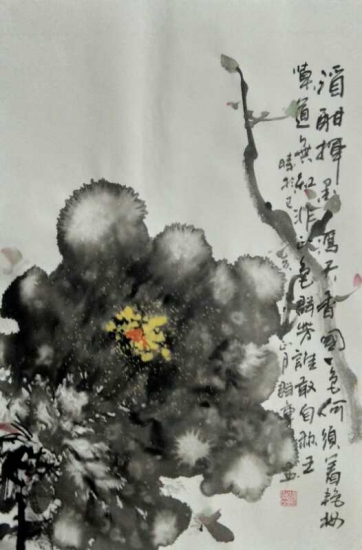 酒酣揮墨寫天香國色何須着艷妝
莫道無紅非正色群芳誰敢自称王
時於己亥 月 畫